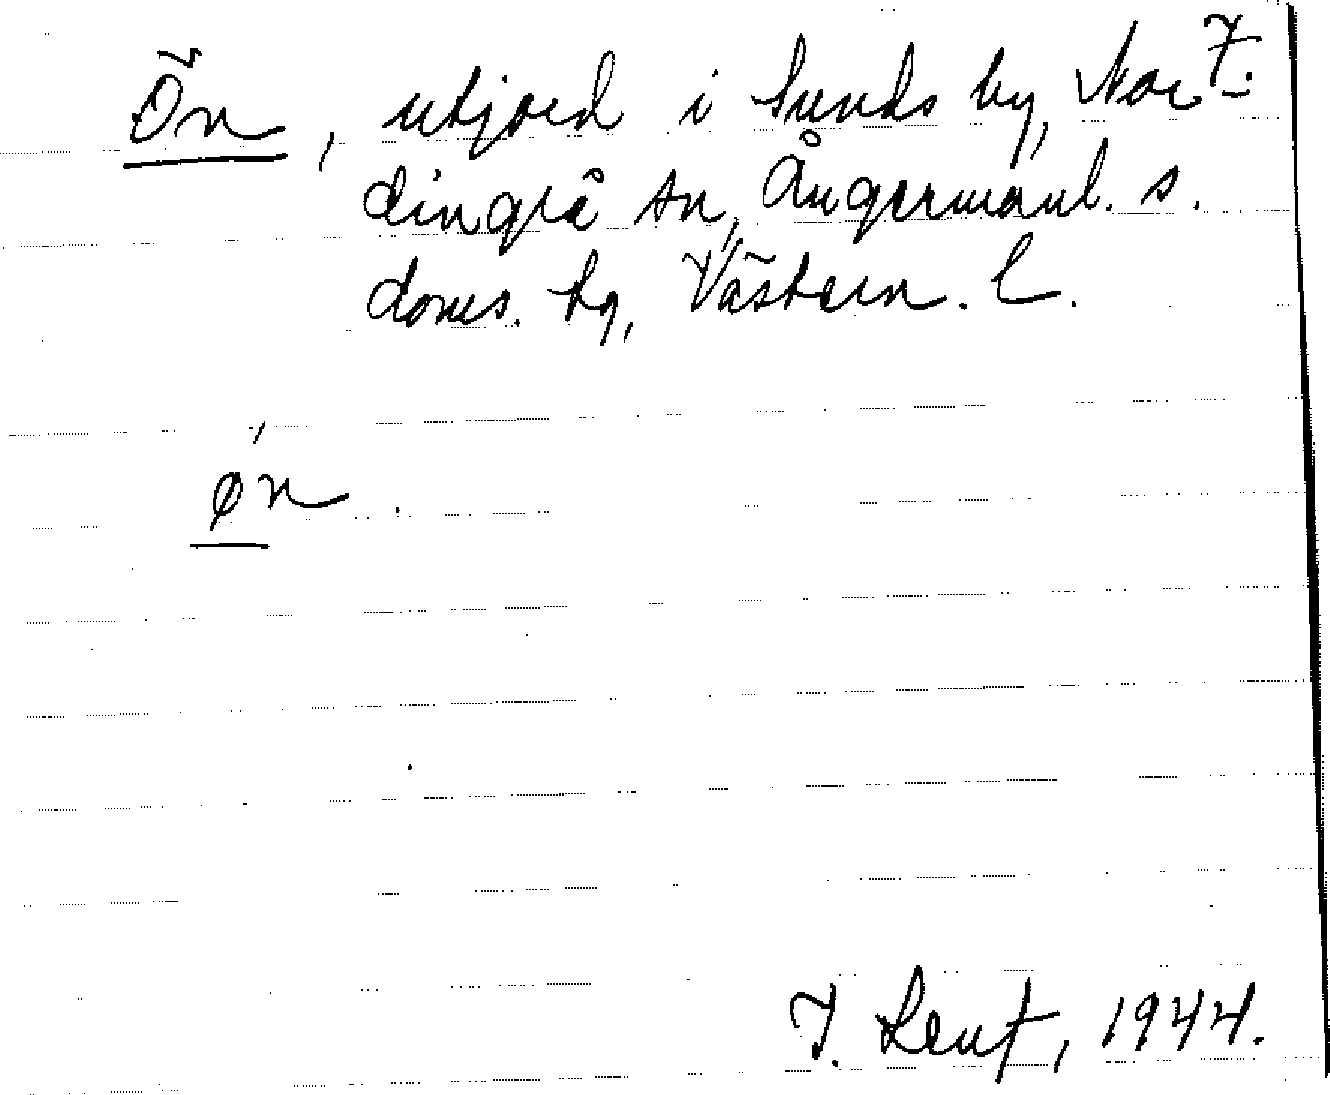 Ön, utjord i Sunds by, Nor- 7.
dingrå sn, Ångermanl. s.
doms. tg, Västern. l.
ǿn.
1944.